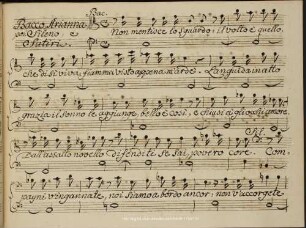 Bacco, Arianna
poi Sileno e
Satiri.
Bac.
Non mentisce lo sguardo, il volto è quello,
Che di sì viva fiamma visto appena m'arse. Languida in atto
grazia il sonno le aggiunge, bello è così, e chiusi agli occhi ancora,
Dall'assalto novello Difenditi se sai povero core.
Sil.
Com-
pagni v'ingannate, noi siamo a bordo ancor; non v'accorgete